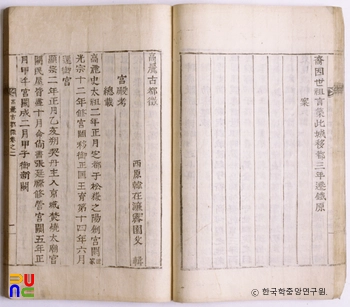 裔因世祖言築此城移都三年遷鐵原
案
高麗古都徵
西原韓在濂霽園父 輯
宮殿考
總載
高麗史太祖二年正月定都于松嶽之陽創宮闕
光宗十二年修宮闕移御正匡王育第十四年六月
還御宮
顯宗二年正月乙亥朔契丹主入京城焚燒太廟宮
闕民屋皆盡十月命尚書張延祐修營宮闕五年正
月甲午宮闕成二月甲子御新闕
ⓒ 한국학중앙연구원.